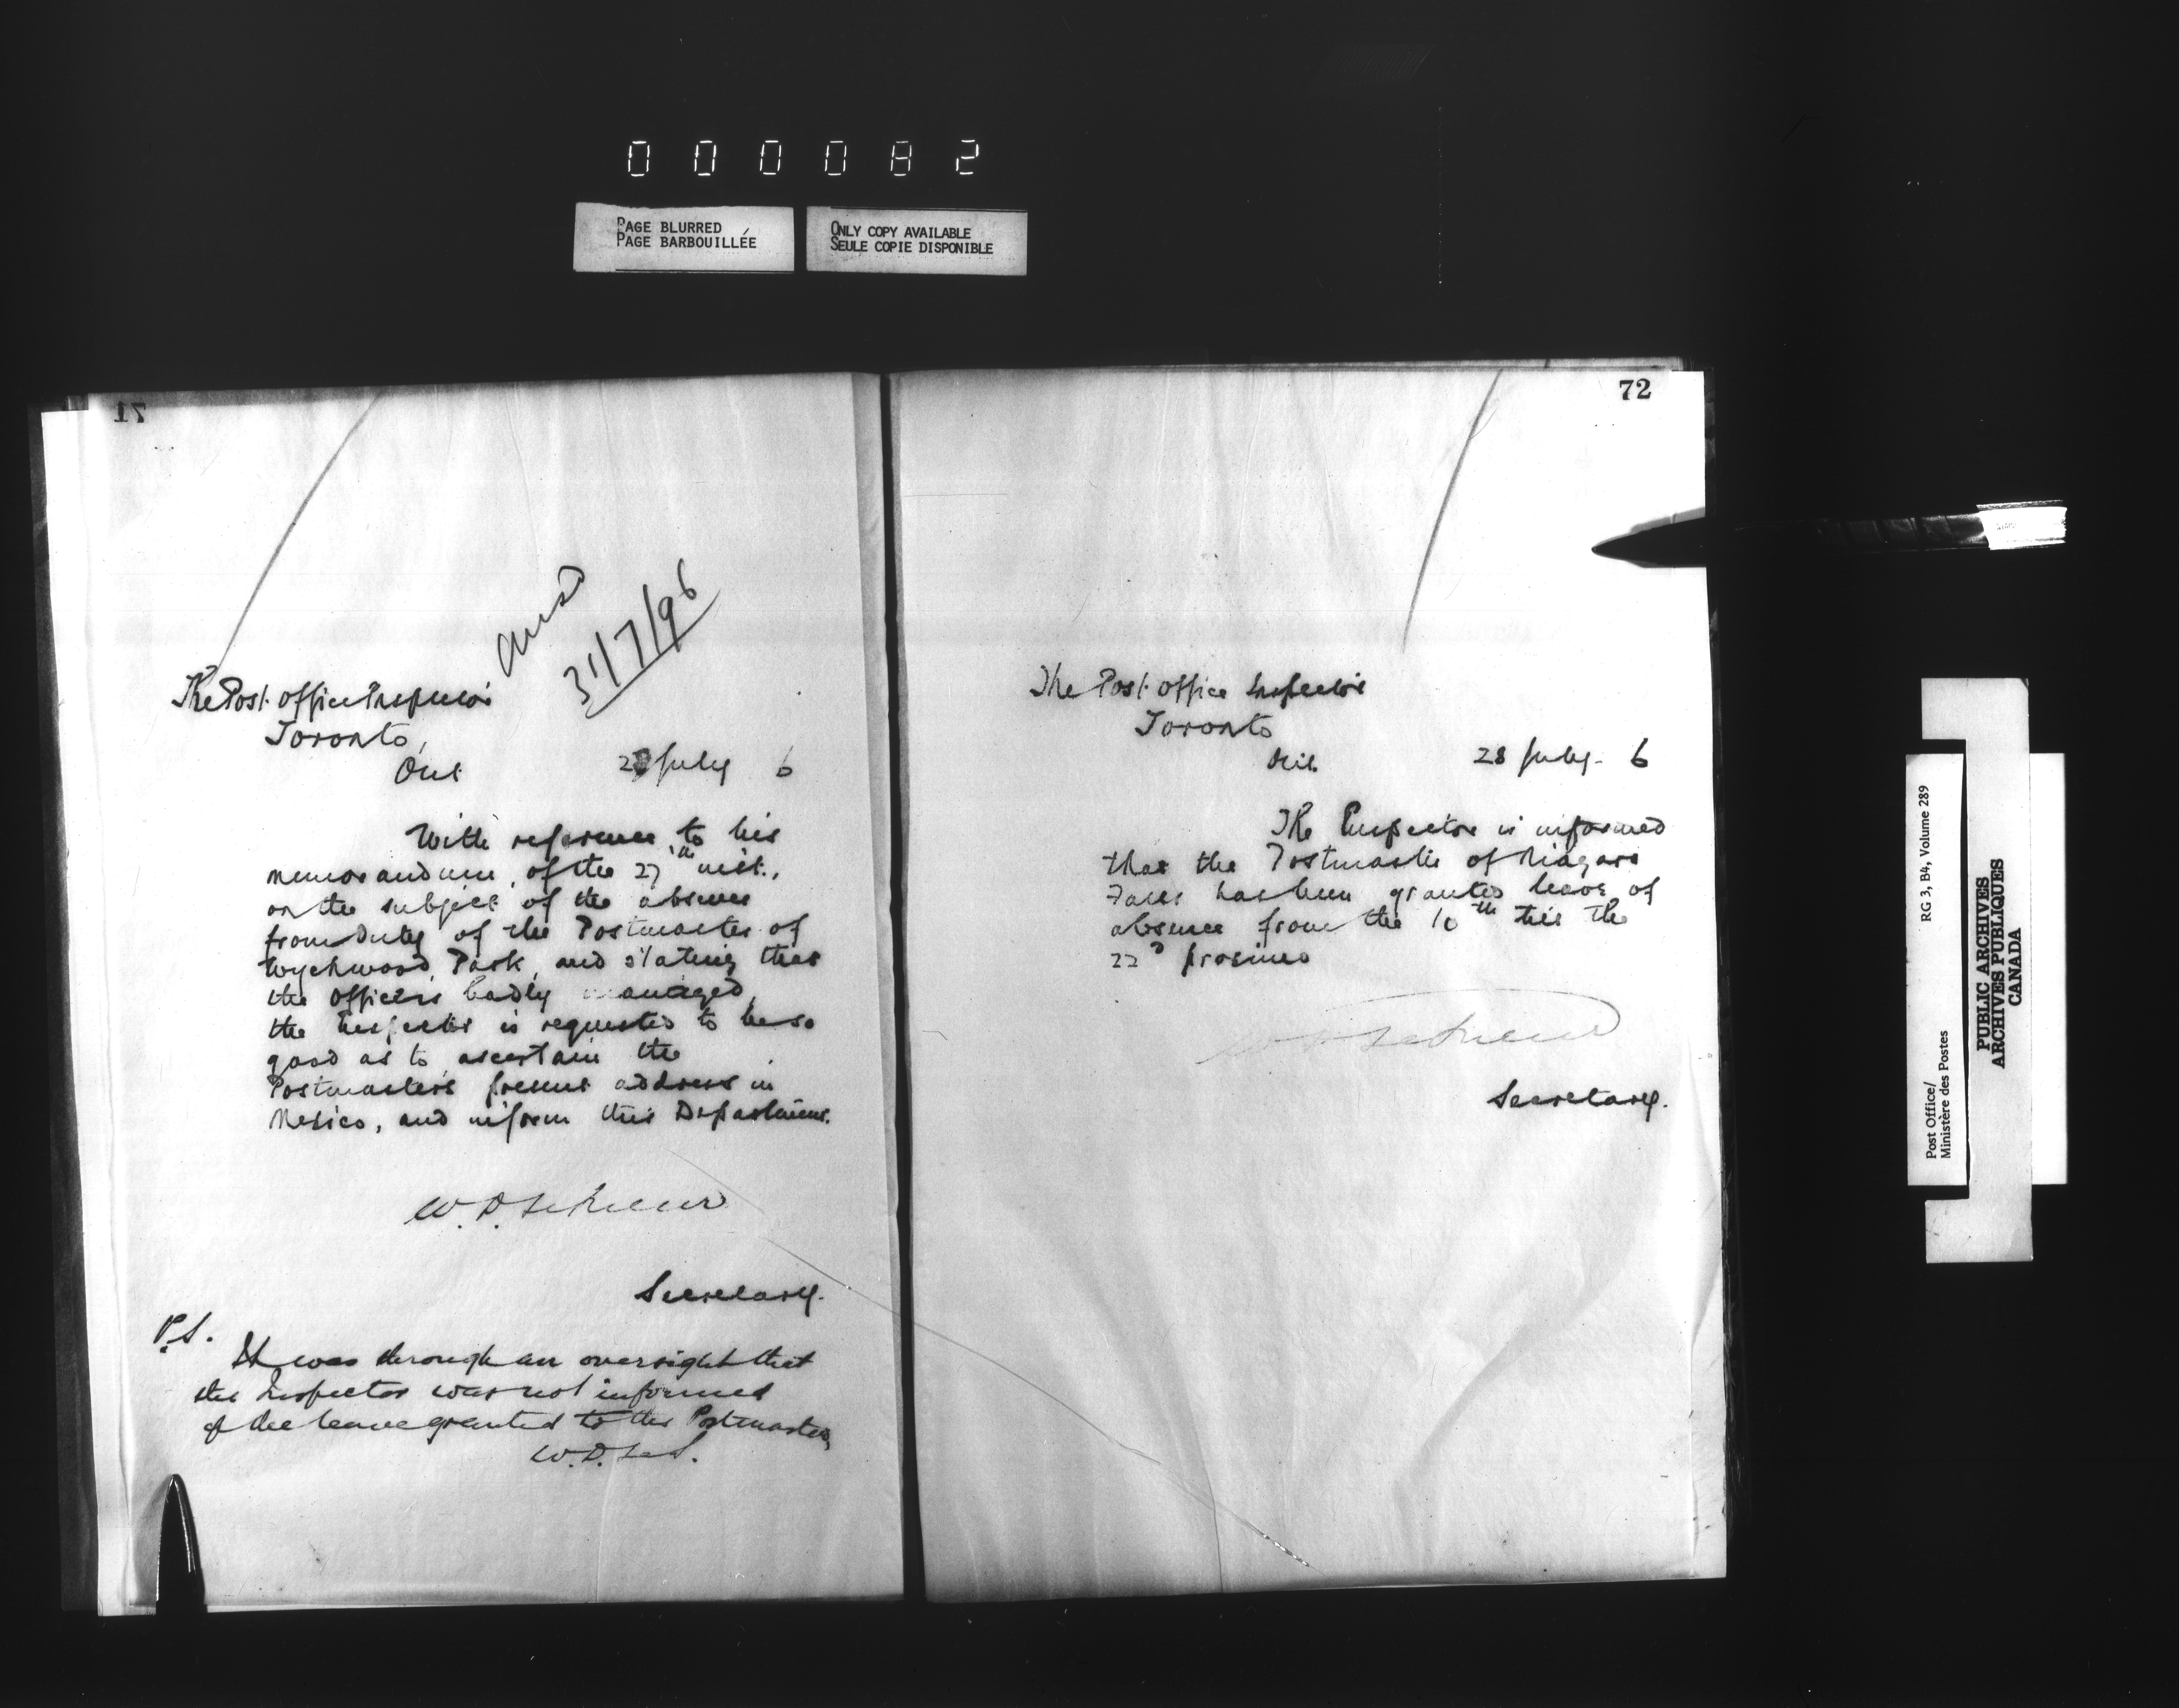 000082
PAGE BLURRED
PAGE BARBOUILLÉE
ONLY COPY AVAILABLE
SEULE COPIE DISPONIBLE
71
Ansd
31/7/96
The Post Office Inspector
Toronto,
Ont
28 July 6
With reference to his
memorandum, of the 27th inst.,
on the subject of the absence
from duty of the Postmaster of
Wychwood Park, and stating that
the office is badly managed,
the Inspector is requested to be so
good as to ascertain the
Postmaster's present address in
Mexico, and inform this Department.
W. D. LeSueur
Secretary.
P.S.
It was through an oversight that
the Inspector was not informed
of the leave granted to the Postmaster,
W.D. LeS.
72
The Post Office Inspector
Toronto
Ont.
28 July. 6
The Inspector is informed
that the Postmaster of Niagara
Falls has been granted leave of
absence from the 10th till the
22d proximo
W D LeSueur
Secretary.
Post Office/
Ministère des Postes
RG 3, B4, Volume 289
PUBLIC ARCHIVES
ARCHIVES PUBLIQUES
CANADA